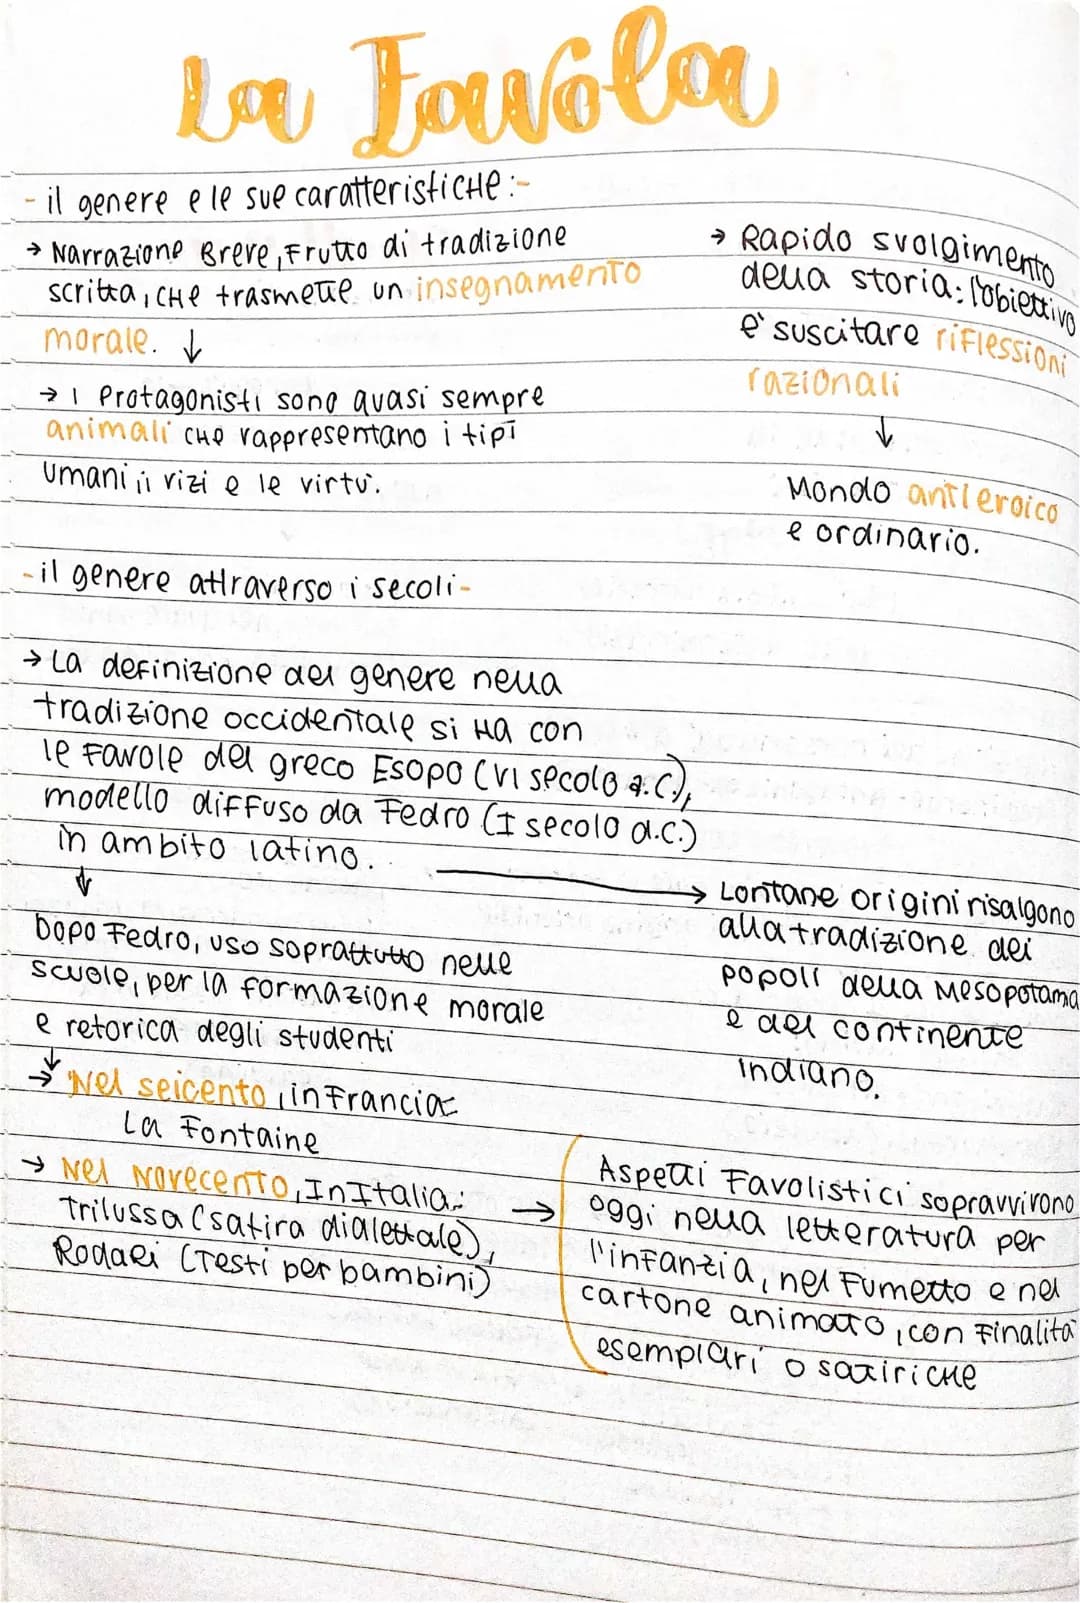 La Favola
- il genere e le sue caratteristiche:-
→ Narrazione Breve, Frutto di tradizione
scritta, che trasmette un insegnamento
morale. ↓
→ I Protagonisti sono quasi sempre
animali che rappresentano i tipi
umani, i vizi e le virtù.
→ Rapido svolgimento
della storia: l'obiettivo
è suscitare riflessioni
razionali
↓
Mondo antieroico
e ordinario.
- il genere attraverso i secoli-
→ La definizione del genere nella
tradizione occidentale si ha con
le Favole del greco Esopo (VI secolo a.C.),
modello diffuso da Fedro (I secolo d.C.)
in ambito latino.
→ Lontane origini risalgono
alla tradizione dei
popoli della Mesopotamia
e del continente
Indiano.
↓
Dopo Fedro, uso soprattutto nelle
scuole, per la formazione morale
e retorica degli studenti
↓
→ Nel seicento, in Francia:
La Fontaine
→ Nel Novecento, In Italia:
Trilussa (satira dialettale),
Rodari (Testi per bambini)
→ Aspetti Favolistici sopravvivono
oggi nella letteratura per
l'infanzia, nel Fumetto e nel
cartone animato, con Finalità
esemplari o satiriche